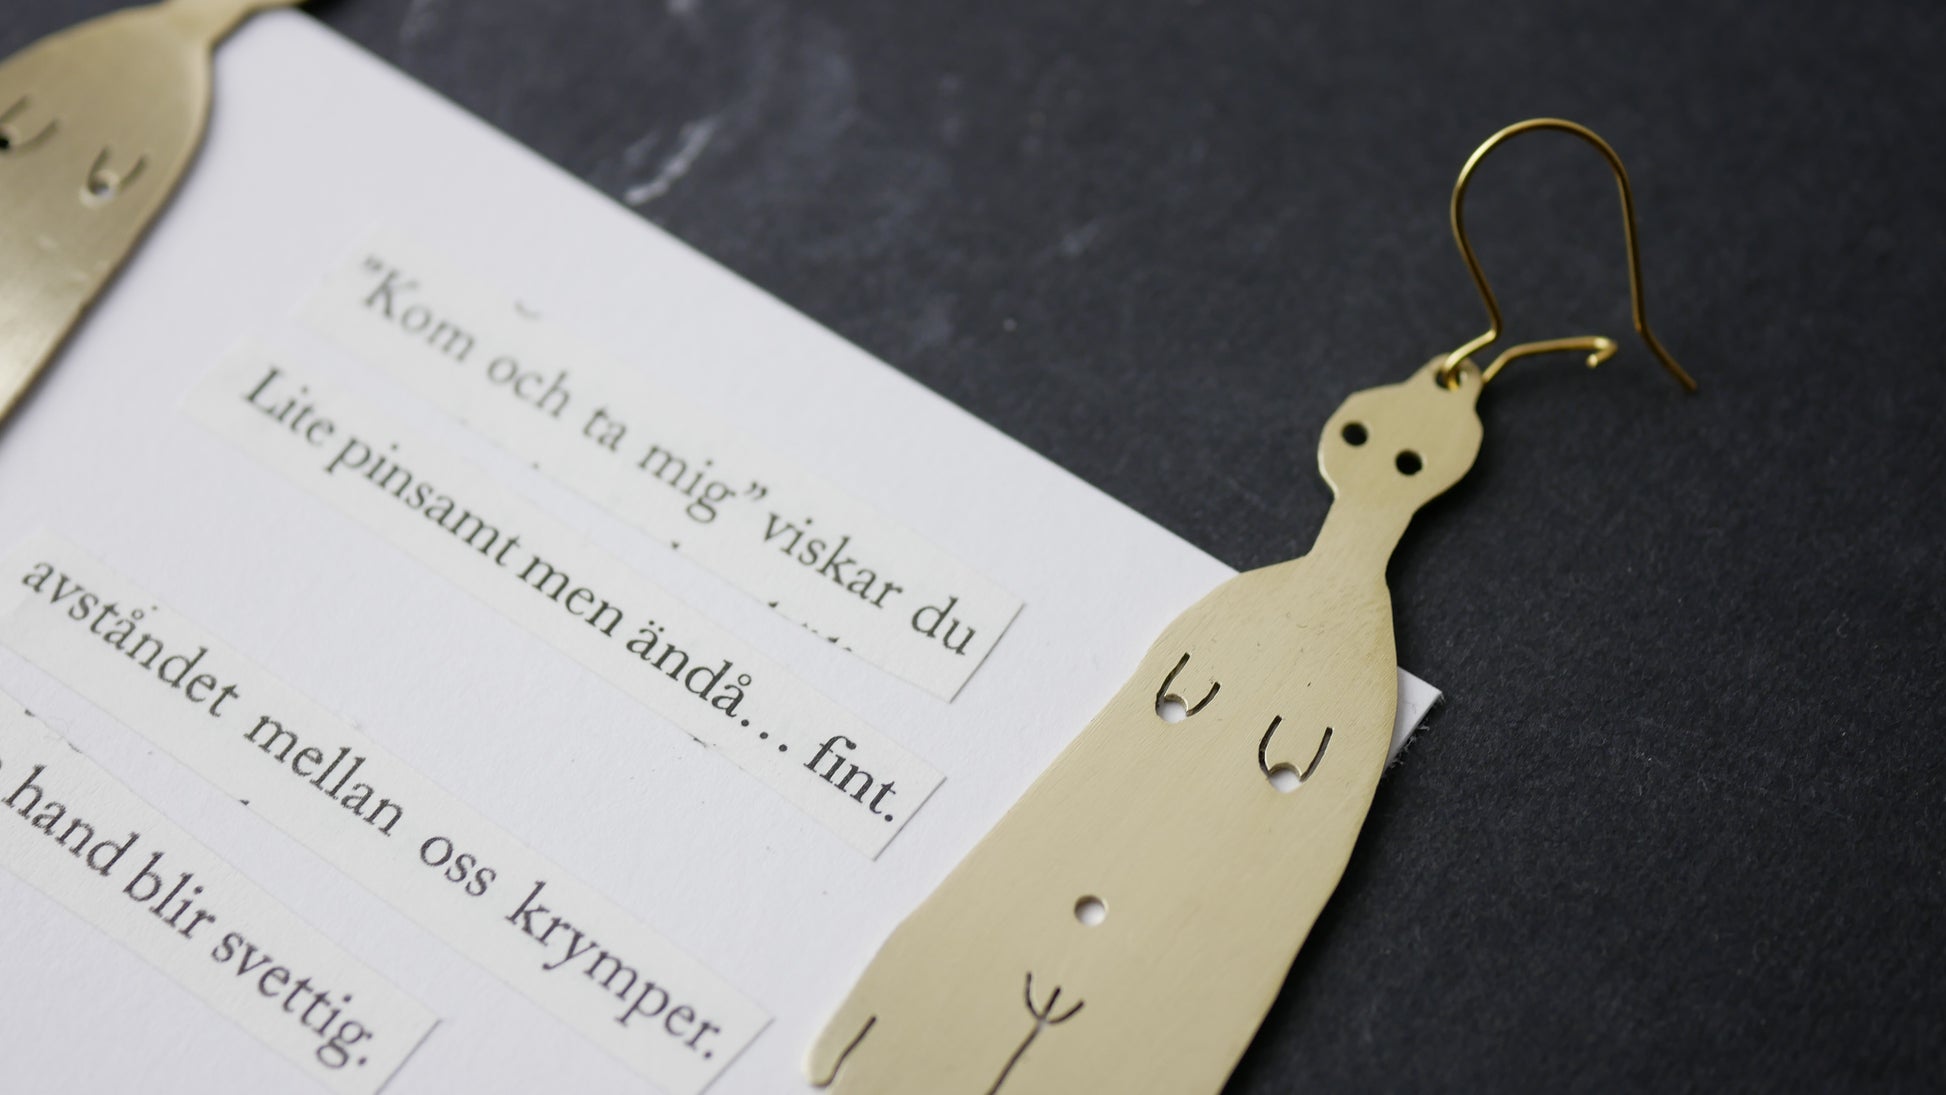 ”Kom och ta mig” viskar du
Lite pinsamt men ändå… fint.
avståndet mellan oss krymper.
hand blir svettig.